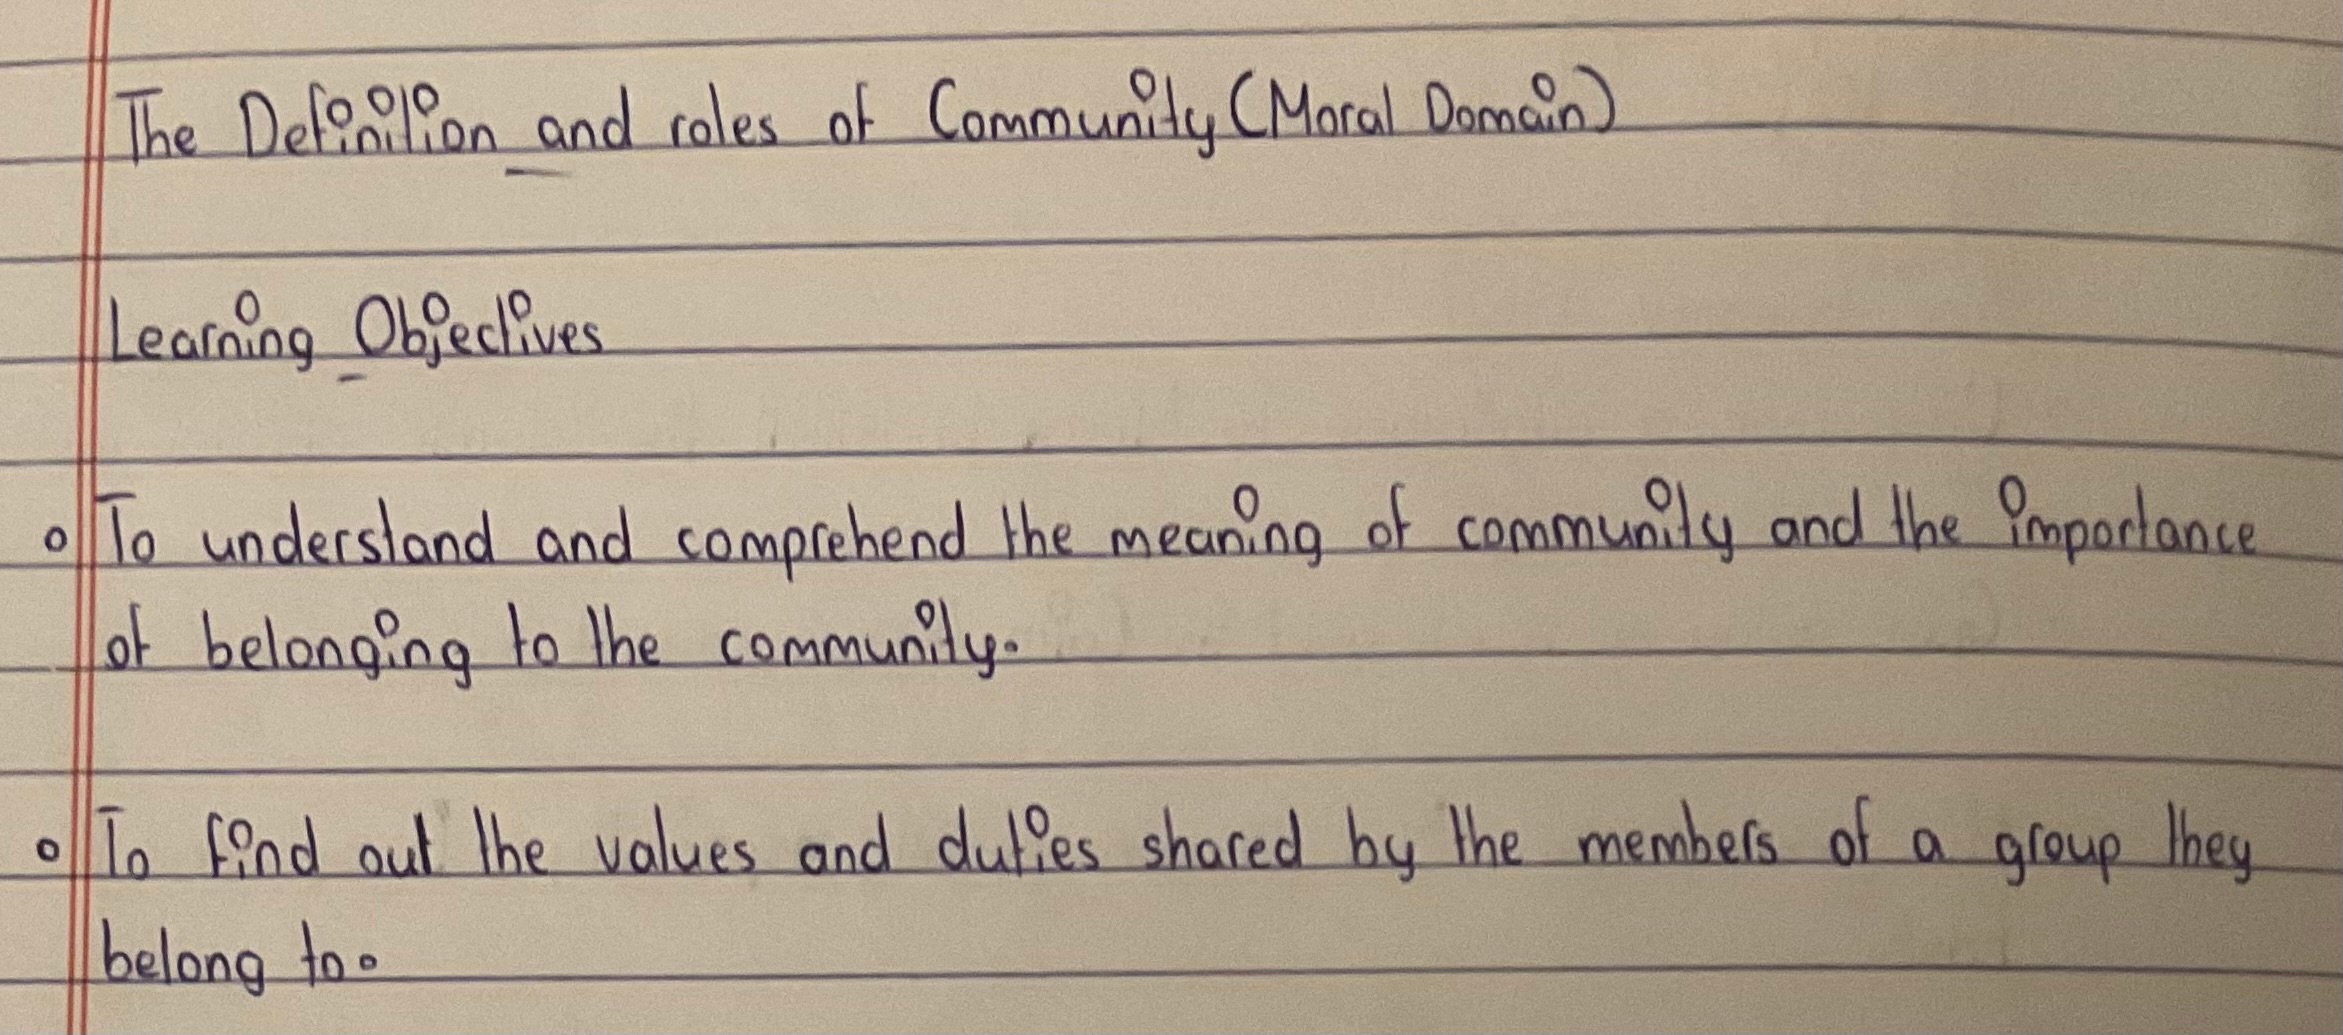 The Definition and roles of Community (Moral Domain)
Learning Objectives
o To understand and comprehend the meaning of community and the importance
of belonging to the community.
o To find out the values and duties shared by the members of a group they
belong to.